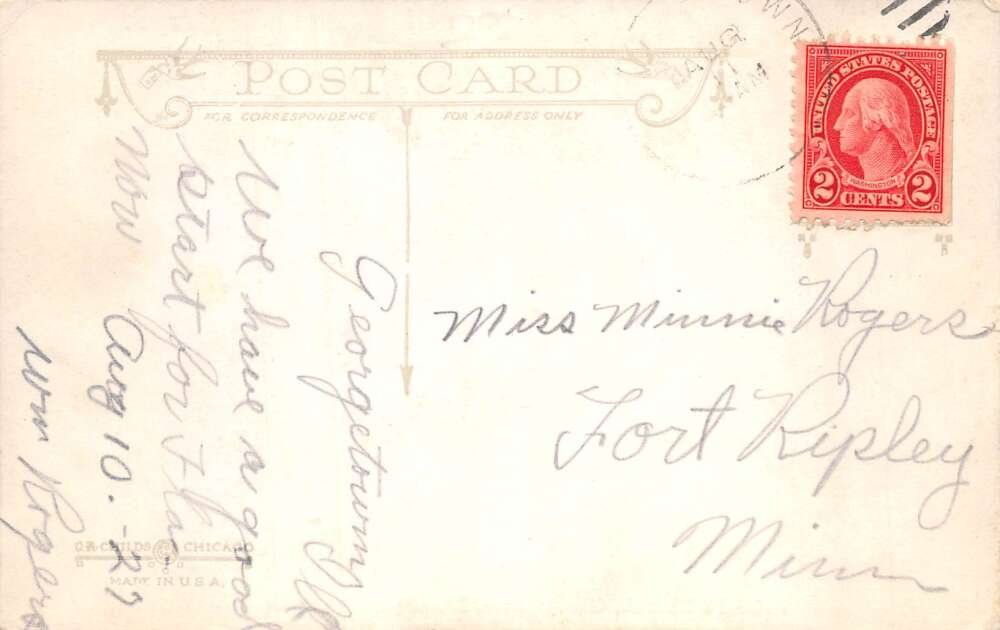 POST CARD
FOR CORRESPONDENCE
FOR ADDRESS ONLY
OWN
AUG
11
AM
UNITED STATES POSTAGE
WASHINGTON
2 CENTS 2
Georgetown Ill
We have a good
start for
Now Aug 10.-27
Wm Rogers
Miss Minnie Rogers
Fort Ripley
Minn
C.R. CHILDS CHICAGO
MADE IN U.S.A.